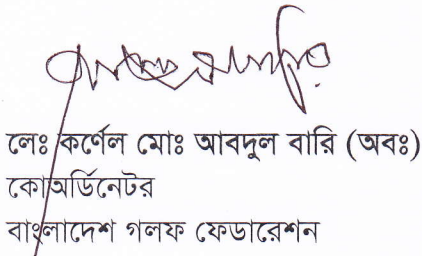 লেঃ কর্ণেল মোঃ আবদুল বারি (অবঃ)
কোঅর্ডিনেটর
বাংলাদেশ গলফ ফেডারেশন